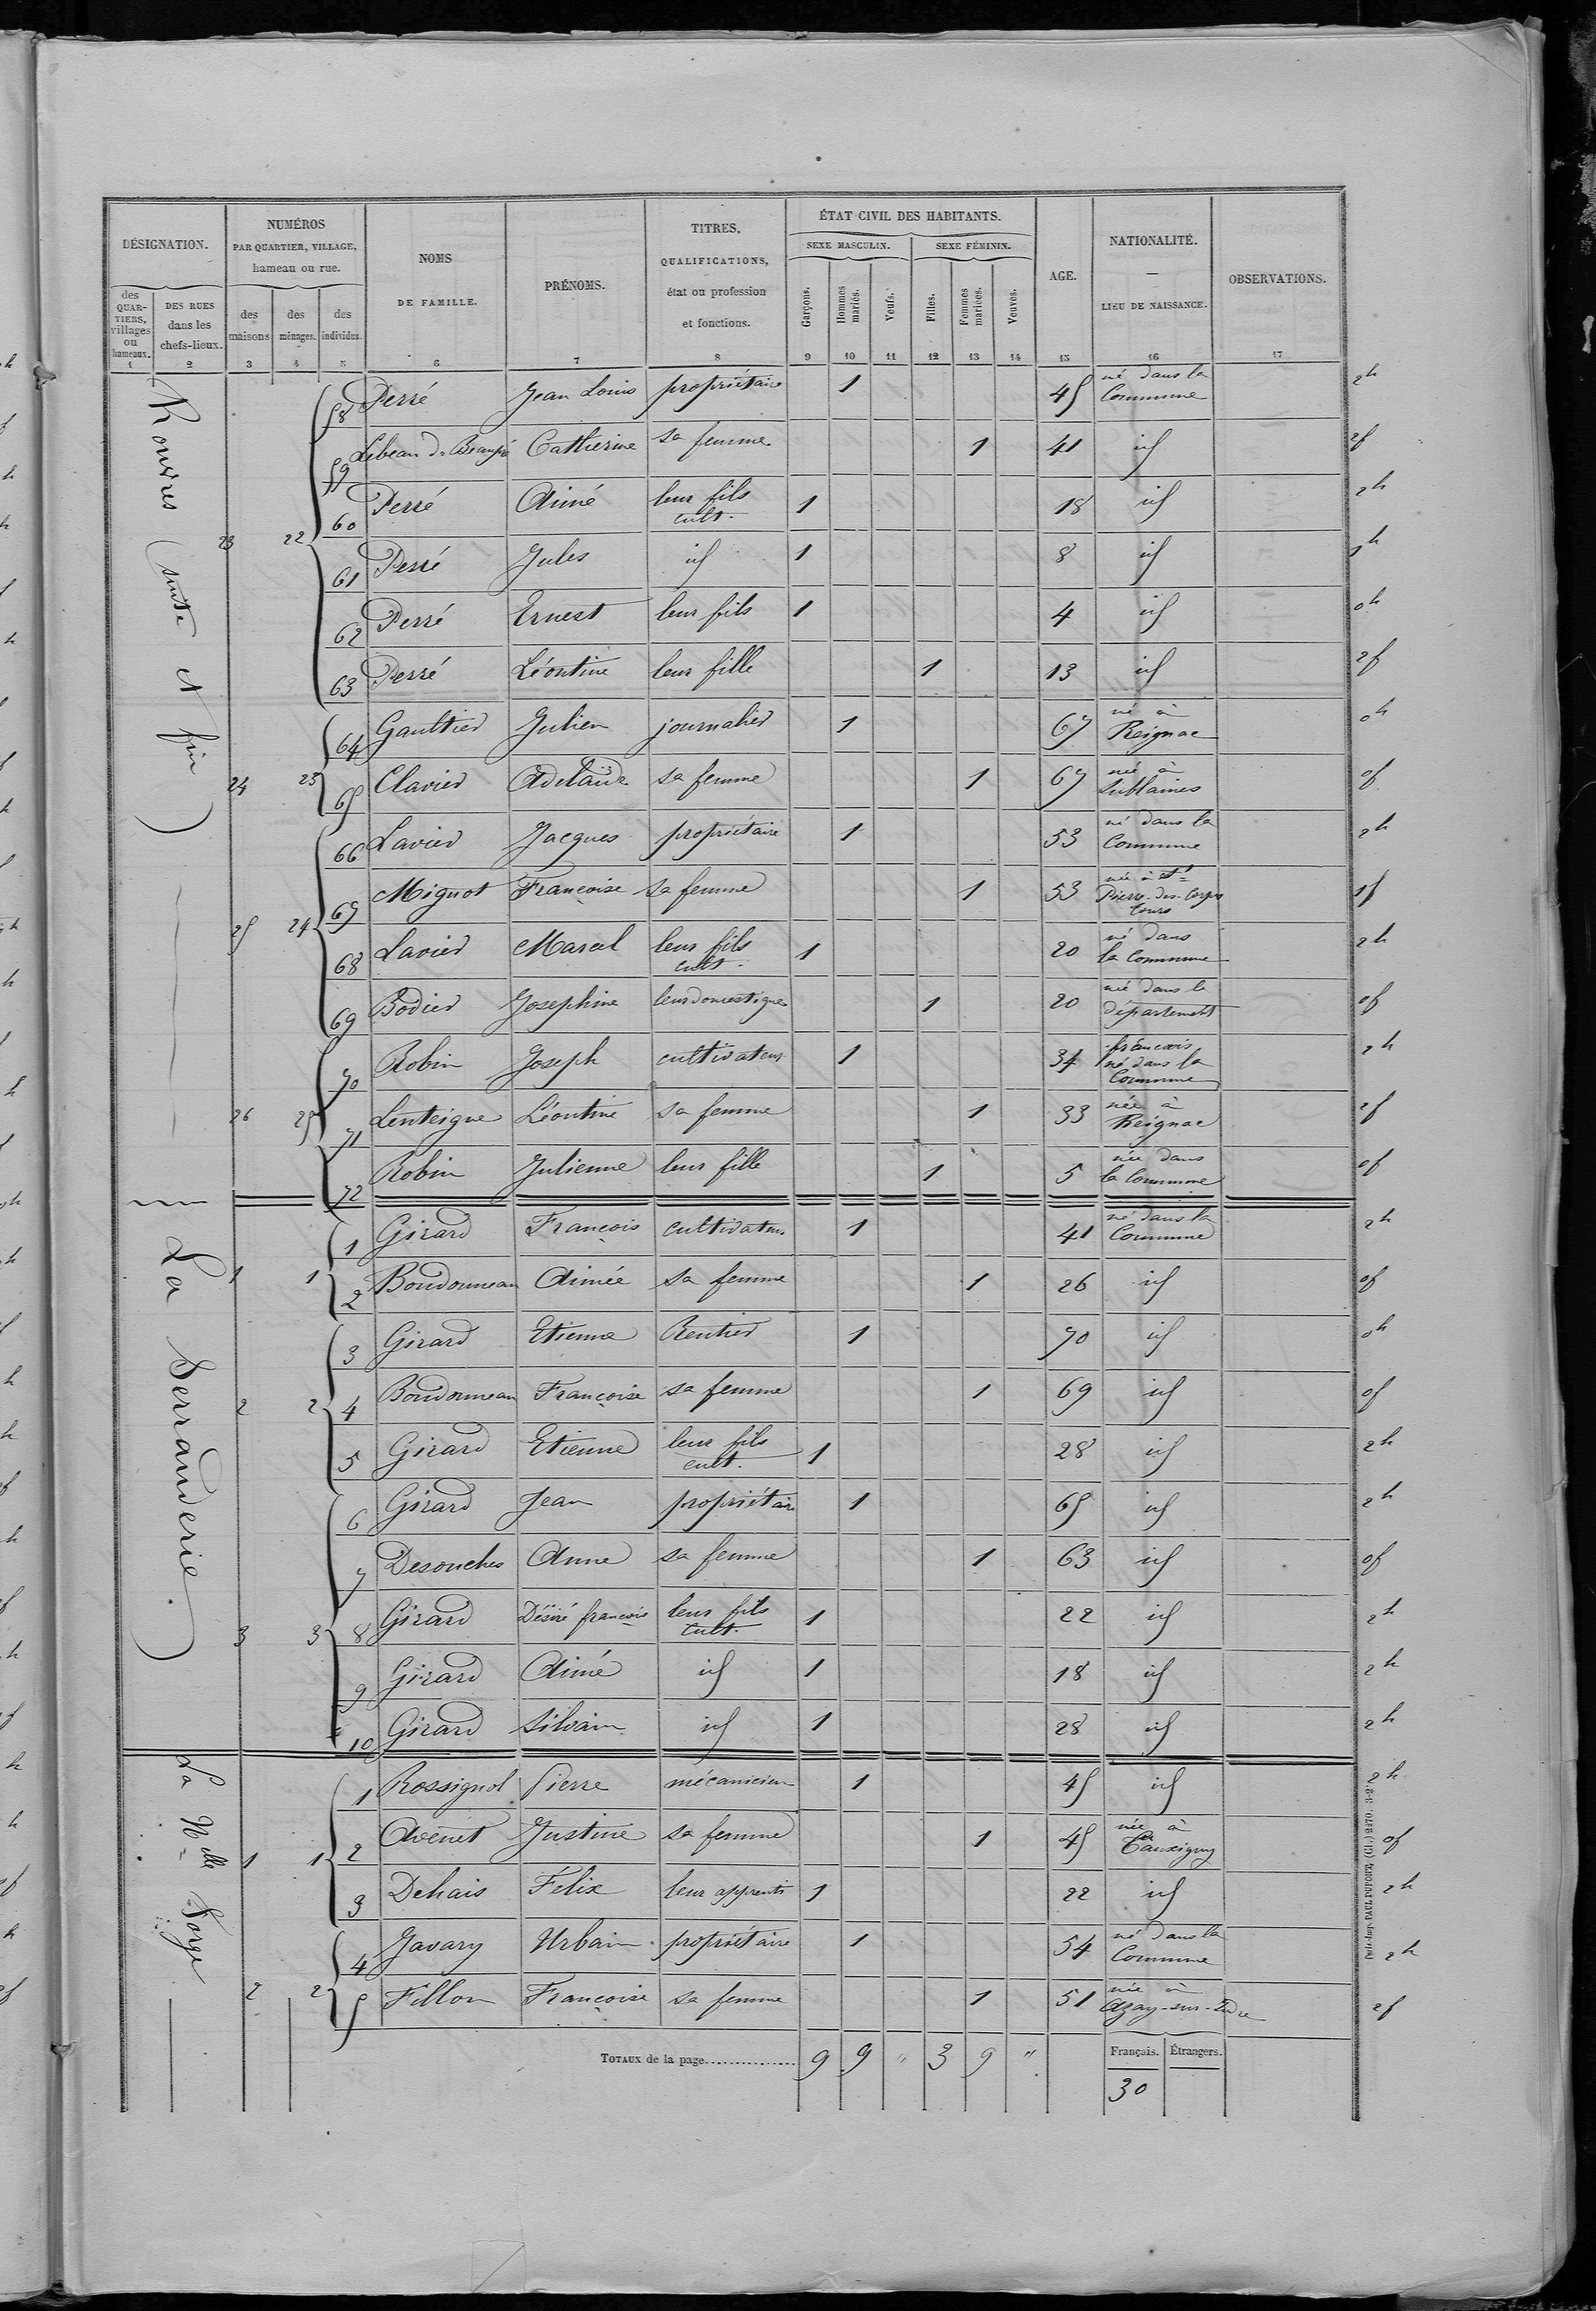 DÉSIGNATION.
NUMÉROS PAR QUARTIER, VILLAGE, hameau ou rue.
NOMS DE FAMILLE.
PRÉNOMS.
TITRES, QUALIFICATIONS, état ou profession et fonctions.
ÉTAT CIVIL DES HABITANTS.
SEXE MASCULIN. SEXE FÉMININ.
AGE.
NATIONALITÉ. — LIEU DE NAISSANCE.
OBSERVATIONS.
des QUARTIERS, villages ou hameaux. DES RUES dans les chefs-lieux. des maisons des ménages. des individus. Garçons. Hommes mariés. Veufs. Filles. Femmes mariées. Veuves.
1 2 3 4 5 6 7 8 9 10 11 12 13 14 15 16 17
Rouvres (suite et fin)
58 Perré Jean Louis propriétaire 1 45 né dans la Commune 2h
59 Lebeau de Beaupré Catherine sa femme 1 41 id 2f
60 Perré Aimé leur fils cult. 1 18 id 2h
23 22
61 Perré Jules id 1 8 id 1h
62 Perré Ernest leur fils 1 4 id 0h
63 Perré Léontine leur fille 1 13 id 2f
64 Gaultier Julien journalier 1 67 né à Reignac 0h
24 23 65 Clavier Adelaïde sa femme 1 67 née à Sublaines 0f
66 Lavier Jacques propriétaire 1 53 né dans la Commune 2h
67 Mignot Françoise sa femme 1 53 née à St Pierre-des-Corps Tours 1f
25 24
68 Lavier Marcel leur fils cult. 1 20 né dans la Commune 2h
69 Bodier Josephine leur domestique 1 20 née dans le département 0f
70 Robin Joseph cultivateur 1 34 français né dans la Commune 2h
26 25 71 Lenteigne Léontine sa femme 1 33 née à Reignac 2f
72 Robin Julienne leur fille 1 5 née dans la Commune 0f
La Serrauderie.
1 Girard François cultivateur 1 41 né dans la Commune 2h
1 1 2 Boudonneau Aimée sa femme 1 26 id 0f
3 Girard Etienne Rentier 1 70 id 0h
2 2 4 Boudonneau Françoise sa femme 1 69 id 0f
5 Girard Etienne leur fils cult. 1 28 id 2h
6 Girard Jean propriétaire 1 65 id 2h
7 Desouches Anne sa femme 1 63 id 0f
3 3 8 Girard Désiré françois leur fils cult. 1 22 id 2h
9 Girard Aimé id 1 18 id 2h
10 Girard Silvain id 1 28 id 2h
La Nlle Forge
1 Rossignol Pierre mécanicien 1 45 id 2h
1 1 2 Avenet Justine sa femme 1 45 née à Tauxigny 0f
3 Dehais Félix leur apprenti 1 22 id 2h
4 Javary Urbain propriétaire 1 54 né dans la Commune 2h
2 2 5 Fillon Françoise sa femme 1 51 née à Azay-sur-Indre 2f
TOTAUX de la page............... 9 9 " 3 9 "
Français. Étrangers.
30